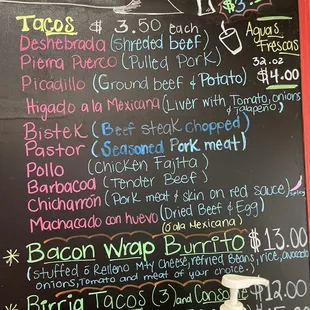 Tacos $3.50 each
Deshebrada (shreded beef)
Pierna Puerco (Pulled Pork)
Picadillo (Ground beef & Potato)
Higado a la Mexicana (Liver with Tomato, onions & Jalapeño.)
Bistek (Beef steak chopped)
Pastor (Seasoned Pork meat)
Pollo (Chicken Fajita)
Barbacoa (Tender Beef)
Chicharrón (Pork meat & skin on red sauce) Spicy
Machacado con huevo (Dried Beef & Egg)
(o a la Mexicana)
Aguas
Frescas
32.oz
$4.00
* Bacon Wrap Burrito $13.00
(stuffed ó Relleno Mty Cheese, refried Beans, rice, avocado
onions, Tomato and meat of your choice.)
* Birria Tacos (3) and Consome $12.00